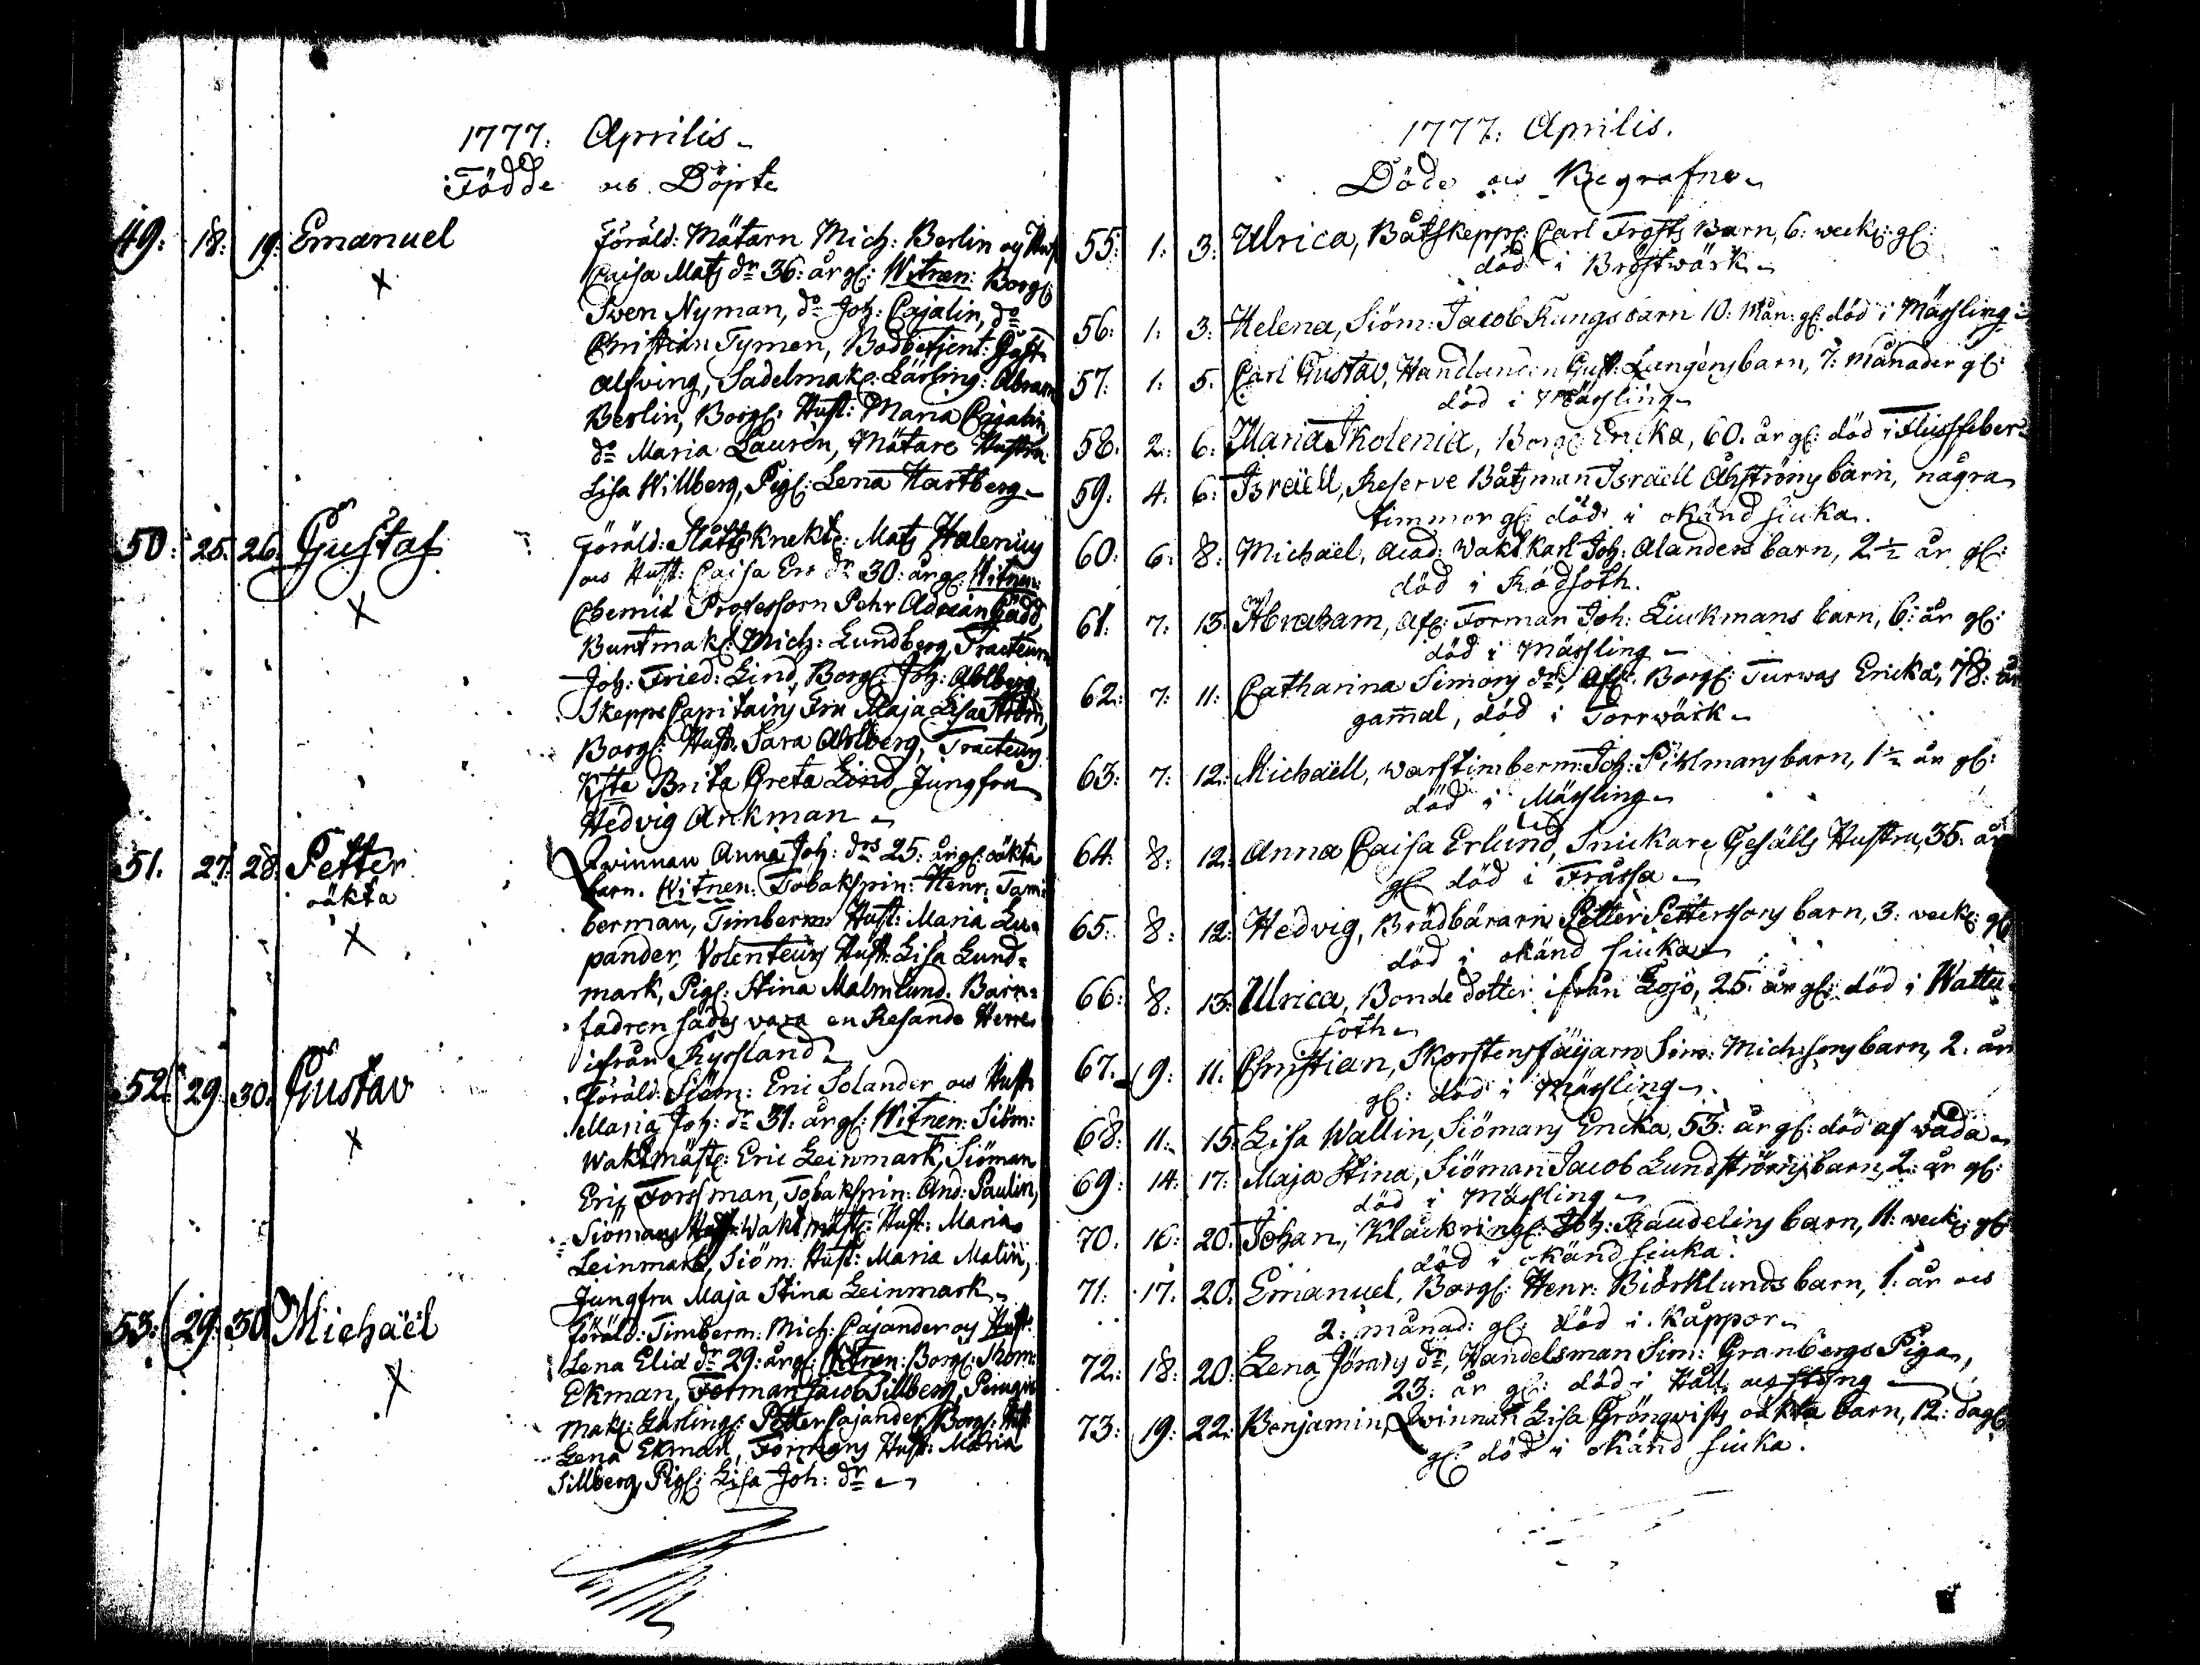 1777. Aprilis
Födde och Döpte
49: 18: 19: Emanuel Föräld: Mätarn Mich: Berlin och Hust
Caisa Mats dr 36: år gl: Witnen: Borg:
Sven Nyman, do Joh: Cajalin, do
Christian Tymen, Bodbetjent: Gust:
Alfving, Sadelmak: Lärling: Abram
Berlin, Borg: Hust: Maria Cajalin
do Maria Lauren, Mätare Hustru
Lisa Willberg, Pig: Lena Hartberg
50: 25. 26. Gustaf Föräld: Slåttsknekt: Mats Halenius
och Hust: Caisa Ers dr 30: år g: Witnen:
Chemiæ Professorn Pehr Adrian Gadd,
Buntmak: Mich: Lundberg, Tracteurn
Joh: Fried: Lind, Borg: Joh: Ahlberg
Skepps Capitains Fru Maja Lisa Ström,
Borg: Hust. Sara Ahlberg, Tracteurs
Brita Greta Lind, Jungfru
Hedvig Arckman
51. 27. 28. Petter Qwinnan Anna Joh: drs 25: år gl: oäkta
oäkta barn. Witnen: Tobakspin: Henr: Tam
berman, Timberm: Hust: Maria Lu=
pander, Volenteurs Hust: Lisa Lund=
mark, Pig: Stina Malmlund. Barn=
fadren sades vara en Resande Herre
ifrån Ryssland
52. 29. 30. Gustav Föräld: Siöm: Eric Solander och Hust
Maria Joh: dr 31: år gl: Witnen: Siöm:
Waktmäst: Eric Leinmark, Siöman
Eric Forssman, Tobakspin: And: Paulin,
Siömans Waktmäst: Hust: Maria
Leinmark, Siöm: Hust: Maria Malin,
Jungfru Maja Stina Leinmark
53: 29. 30. Michaël Föräld: Timberm: Mich: Cajander och Hust:
Lena Elia dr 29: år gl: Witnen: Borg: Thom:
Ekman, Forman Jacob Sillberg, Peruqu
mak: Lärling: Petter Cajander, Borg: Hust:
Lena Ekman, Formans Hust: Maria
Sillberg, Pig: Lisa Joh: dr
1777: Aprilis.
Döde och Begrafne
55: 1: 3: Ulrica, Båtskepp: Carl Frosts Barn, 6: weck: gl:
död i Bröstwärk
56: 1: 3: Helena, Siöm: Jacob Kungs barn 10: Mån: gl: död i Mässling
57: 1: 5. Carl Gustav, Handlanden Gust: Lungéns barn, 7: Månader gl:
död i Mässling
58: 2: 6: Maria Skolenia, Borg: Encka, 60. år gl: död i Flussfeber
59. 4. 6: Israëll, Reserve Båtsman Israëll Åhströms barn, några
timmor gl: död i okänd siuka.
60: 6: 8: Michaël, Acad: Wakt Karl Joh: Alanders barn, 2 1/2 år gl:
död i Rödsoth.
61: 7: 13. Abraham, Af: Forman Joh: Liukmans barn, 6: år gl:
död i Mässling
62: 7: 11: Catharina Simons dr, Af: Borg: Turwas Encka, 78: år
gammal, död i Torrwärk
63: 7: 12: Michaëll, warftimberm: Joh: Pihlmans barn, 1 1/2 år gl:
död i Mässling
64: 8: 12: Anna Caisa Erlund, Snickare Gesälls Hustru, 35. år
gl: död i Frossa
65: 8: 12: Hedvig, Brädbärarn Petter Petterssons barn, 3: weck: gl
död i okänd siuka
66: 8: 13: Ulrica, Bonde dotter ifrån Lojo, 25: år gl: död i Wattu
soth
67. 9: 11. Christian, Skorstensfäijarn Sim: Michssons barn, 2. år
gl: död i Mässling
68: 11: 15: Lisa Wallin, Siömans Encka, 53: år gl: död af wåda
69: 14: 17: Maja Stina, Siöman Jacob Lundströms barn, 2: år gl:
död i Mässling
70. 16: 20: Johan, Kläckring: Joh: Raudelins barn, 11: weck: gl:
död i okänd siuka.
71: 17. 20: Emanuel, Borg: Henr: Biörklunds barn, 1. år och
2: månad: gl: död i Kåppor
72: 18: 20: Lena Jörans dr, Handelsman Sim: Granbergs Piga,
23: år gl: död i Håll och styng
73: 19: 22: Benjamin, Qwinnan Lisa Grönqvists oäkta barn, 12: dag
gl: död i okänd siuka.